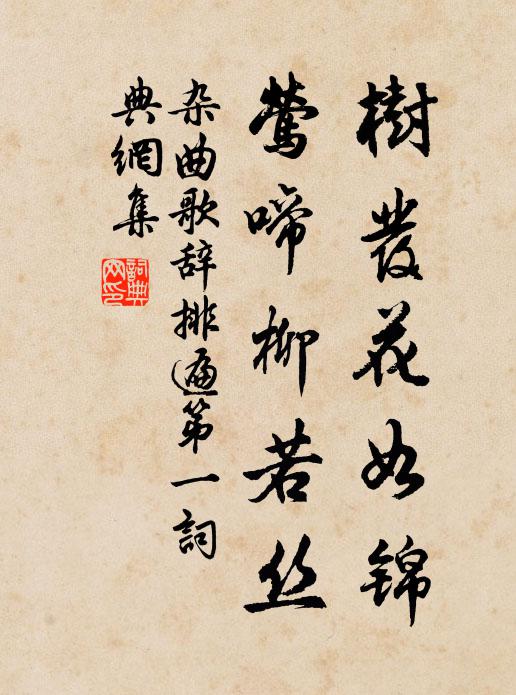 樹發花如锦
鶯啼柳若丝
杂曲歌辞排遍第一詞
典網集
詞典网印